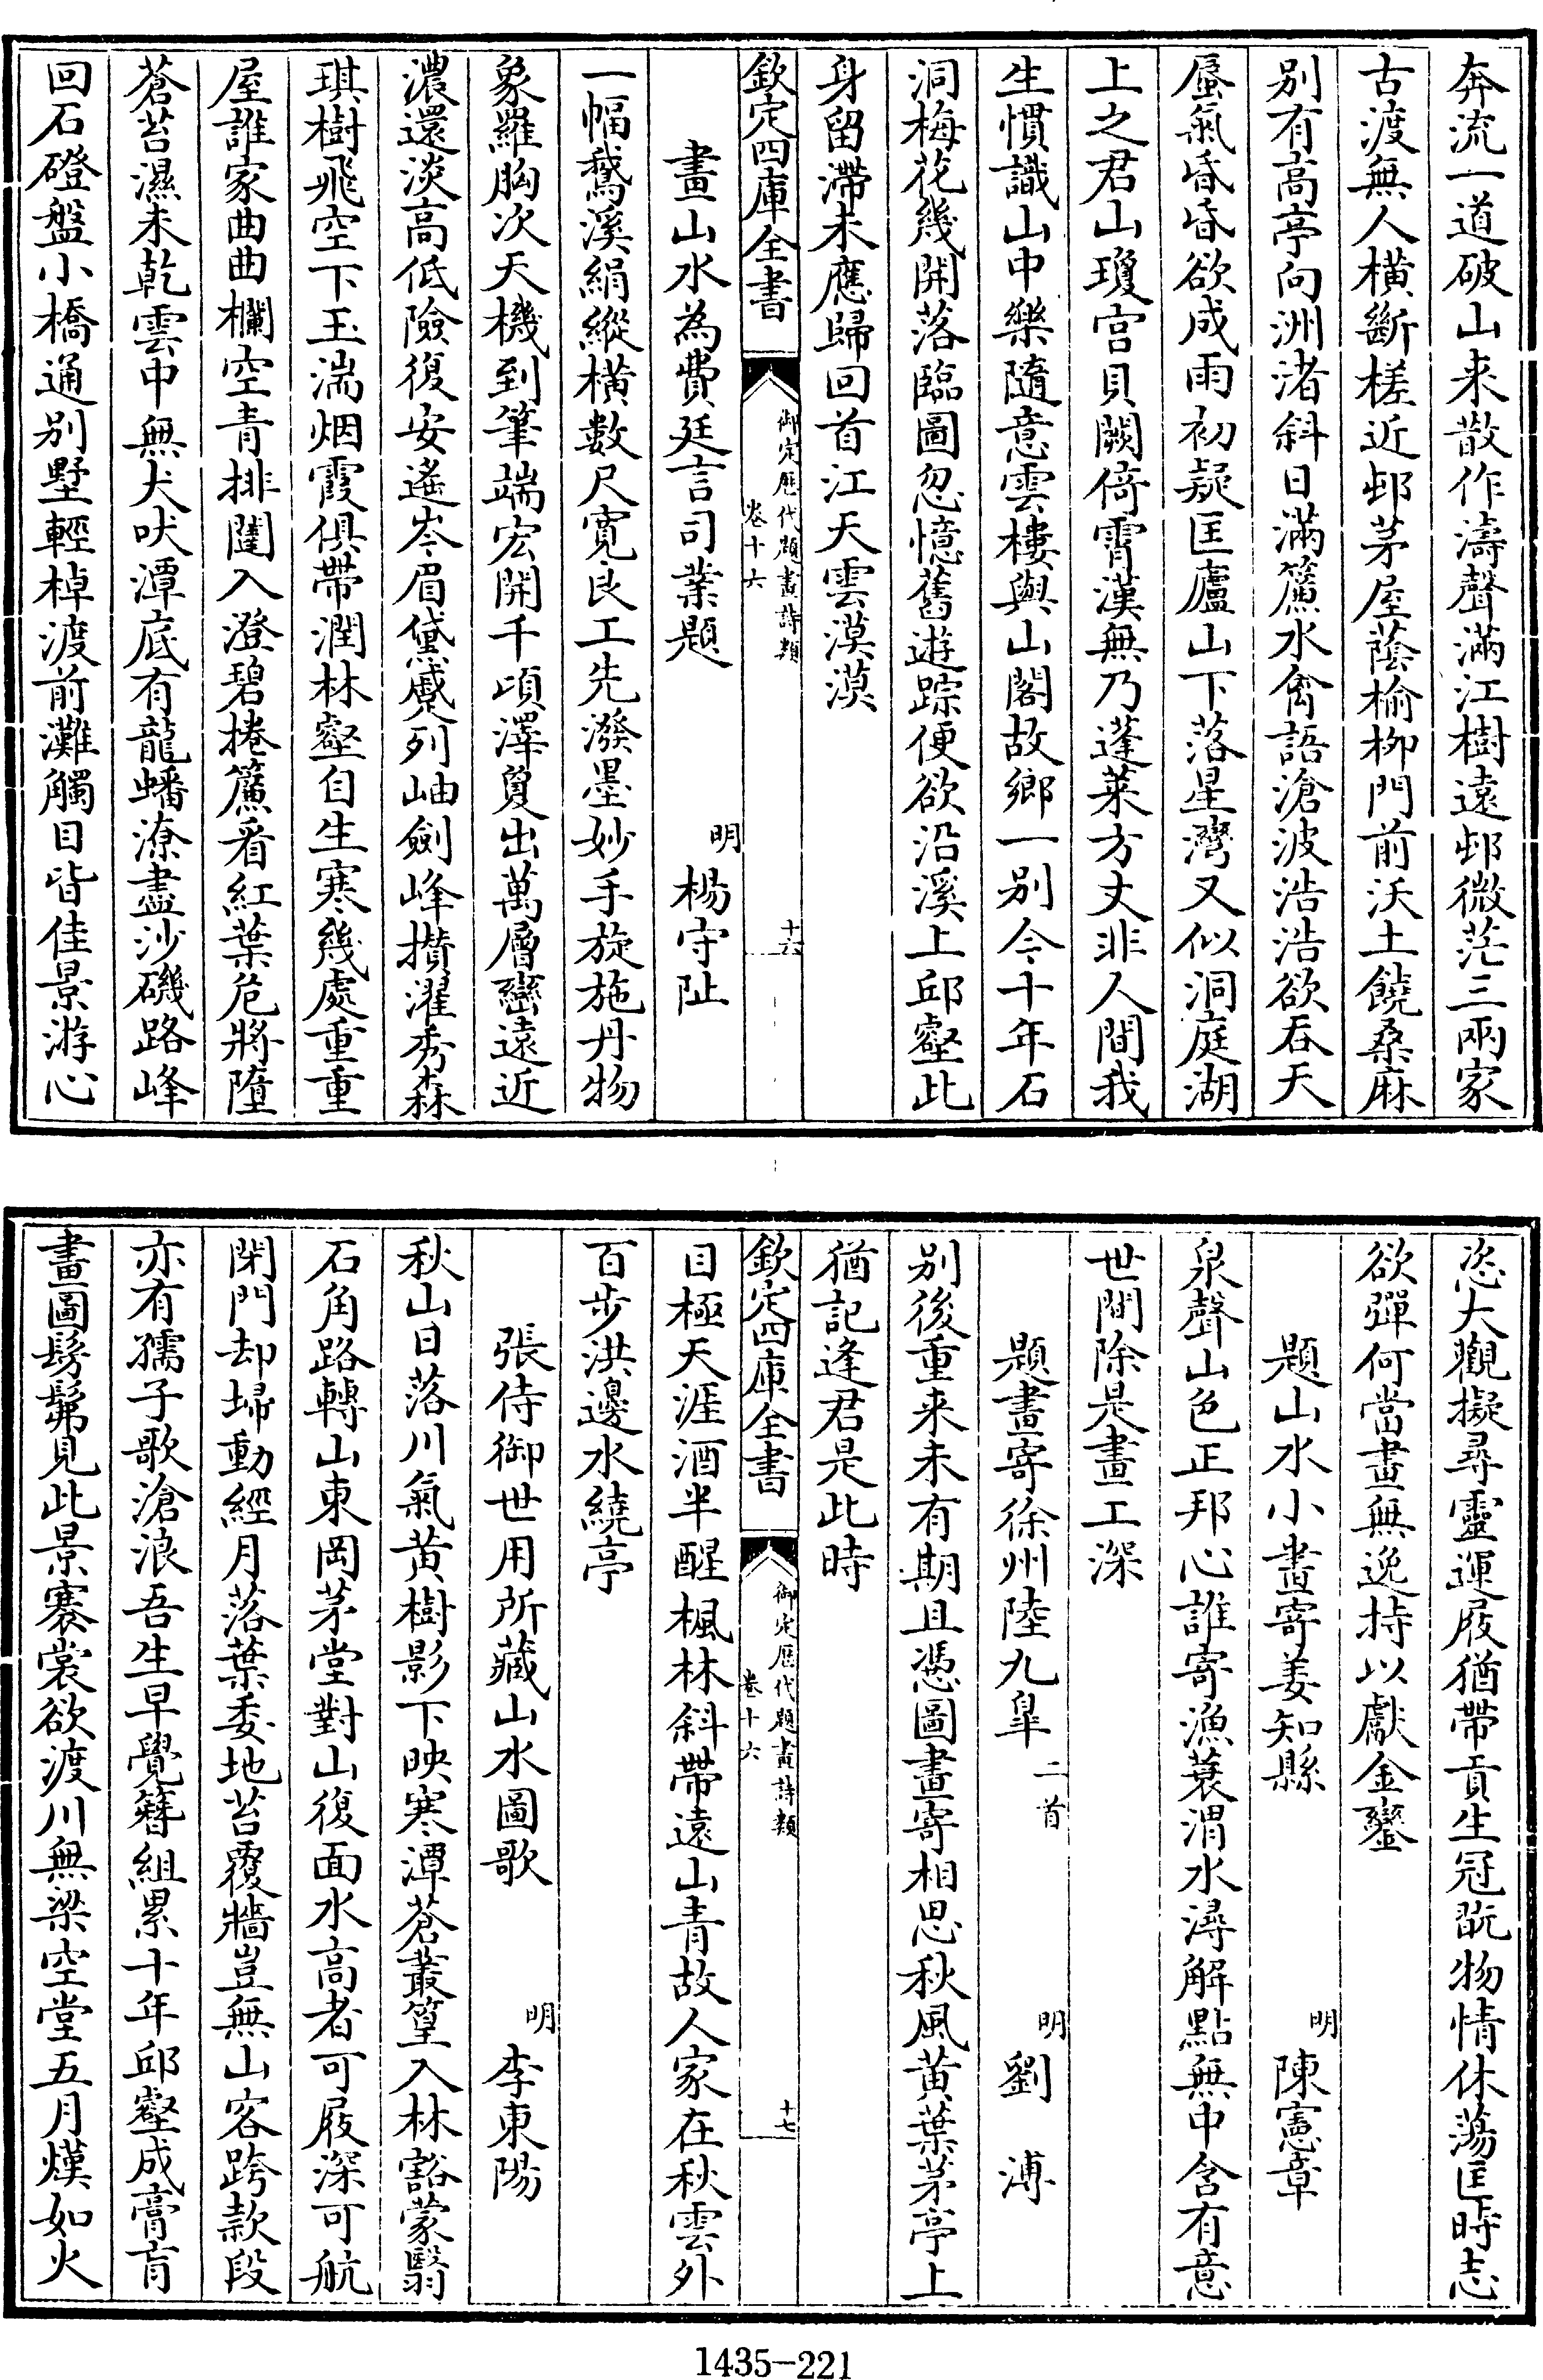 奔流一道破山来散作濤聲滿江樹遠邨微茫三兩家
古渡無人横斷槎近邨茅屋蔭榆栁門前沃土饒桑麻
别有高亭向洲渚斜日滿簾水禽語滄波浩浩欲吞天
蜃氣昏昏欲成雨初疑匡廬山下落星灣又似洞庭湖
上之君山瓊宫貝闕倚霄漢無乃蓬莱方丈非人間我
生慣識山中樂隨意雲樓與山閣故鄉一别今十年石
洞梅花幾開落臨圖忽憶舊遊踪便欲沿溪上邱壑此
身留滯未應歸回首江天雲漠漠
欽定四庫全書
御定歴代題畫詩類
卷十六
十六
畫山水為費廷言司業題
明 楊守阯
一幅鵞溪絹縱横數尺寛良工先潑墨妙手旋施丹物
象羅胸次天機到筆端宏開千頃澤敻出萬層巒遠近
濃還淡高低險復安遙岑眉黛蹙列岫劍峰攅濯秀森
琪樹飛空下玉湍烟霞俱帶潤林壑自生寒幾處重重
屋誰家曲曲欄空青排闥入澄碧捲簾看紅葉危將墮
蒼苔濕未乾雲中無犬吠潭底有龍蟠潦盡沙磯路峰
回石磴盤小橋通別墅輕棹渡前灘觸目皆佳景游心
恣大觀擬尋靈運屐猶帶貢生冠翫物情休蕩匡時志
欲彈何當畫無逸持以獻金鑾
題山水小畫寄姜知縣
明 陳憲章
泉聲山色正邦心誰寄漁蓑渭水潯解點無中含有意
世間除是畫工深
題畫寄徐州陸九臯 二首
明 劉溥
别後重来未有期且憑圖畫寄相思秋風黄葉茅亭上
猶記逢君是此時
欽定四庫全書
御定歴代題畫詩類
卷十六
十七
目極天涯酒半醒楓林斜帶遠山青故人家在秋雲外
百步洪邊水繞亭
張侍御世用所藏山水圖歌
明 李東陽
秋山日落川氣黄樹影下映寒潭蒼叢篁入林豁蒙翳
石角路轉山東岡茅堂對山復面水高者可屐深可航
閉門却埽動經月落葉委地苔覆牆豈無山客跨款段
亦有孺子歌滄浪吾生早覺簪組累十年邱壑成膏肓
畫圖髣髴見此景褰裳欲渡川無梁空堂五月熯如火
1435-221